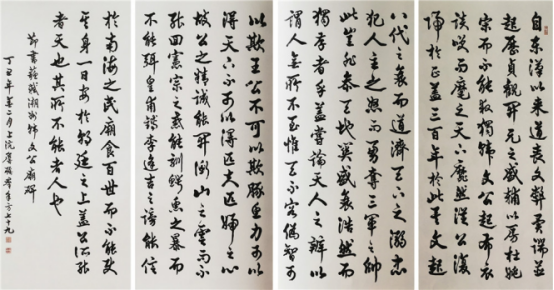 自东漢以來道喪文弊異端並
起歷貞觀開元之盛輔以房杜姚
宋而不能救獨韓文公起布衣
談笑而麾之天下靡然從公復
歸於正蓋三百年於此矣文起
八代之衰而道濟天下之溺忠
犯人主之怒而勇奪三軍之帥
此豈非參天地關盛衰浩然而
獨存者乎蓋嘗論天人之辨以
謂人無所不至惟天不容偽智可
以欺王公不可以欺豚魚力可以
得天下不可以得匹夫匹婦之心
故公之精誠能開衡山之雲而不
能回憲宗之惑能馴鱷魚之暴而
不能弭皇甫鎛李逢吉之謗能信
於南海之民廟食百世而不能使
其身一日安於朝廷之上蓋公之所能
者天也其所不能者人也
節書蘇軾潮州韓文公廟碑
丁丑年 月上浣 七十九